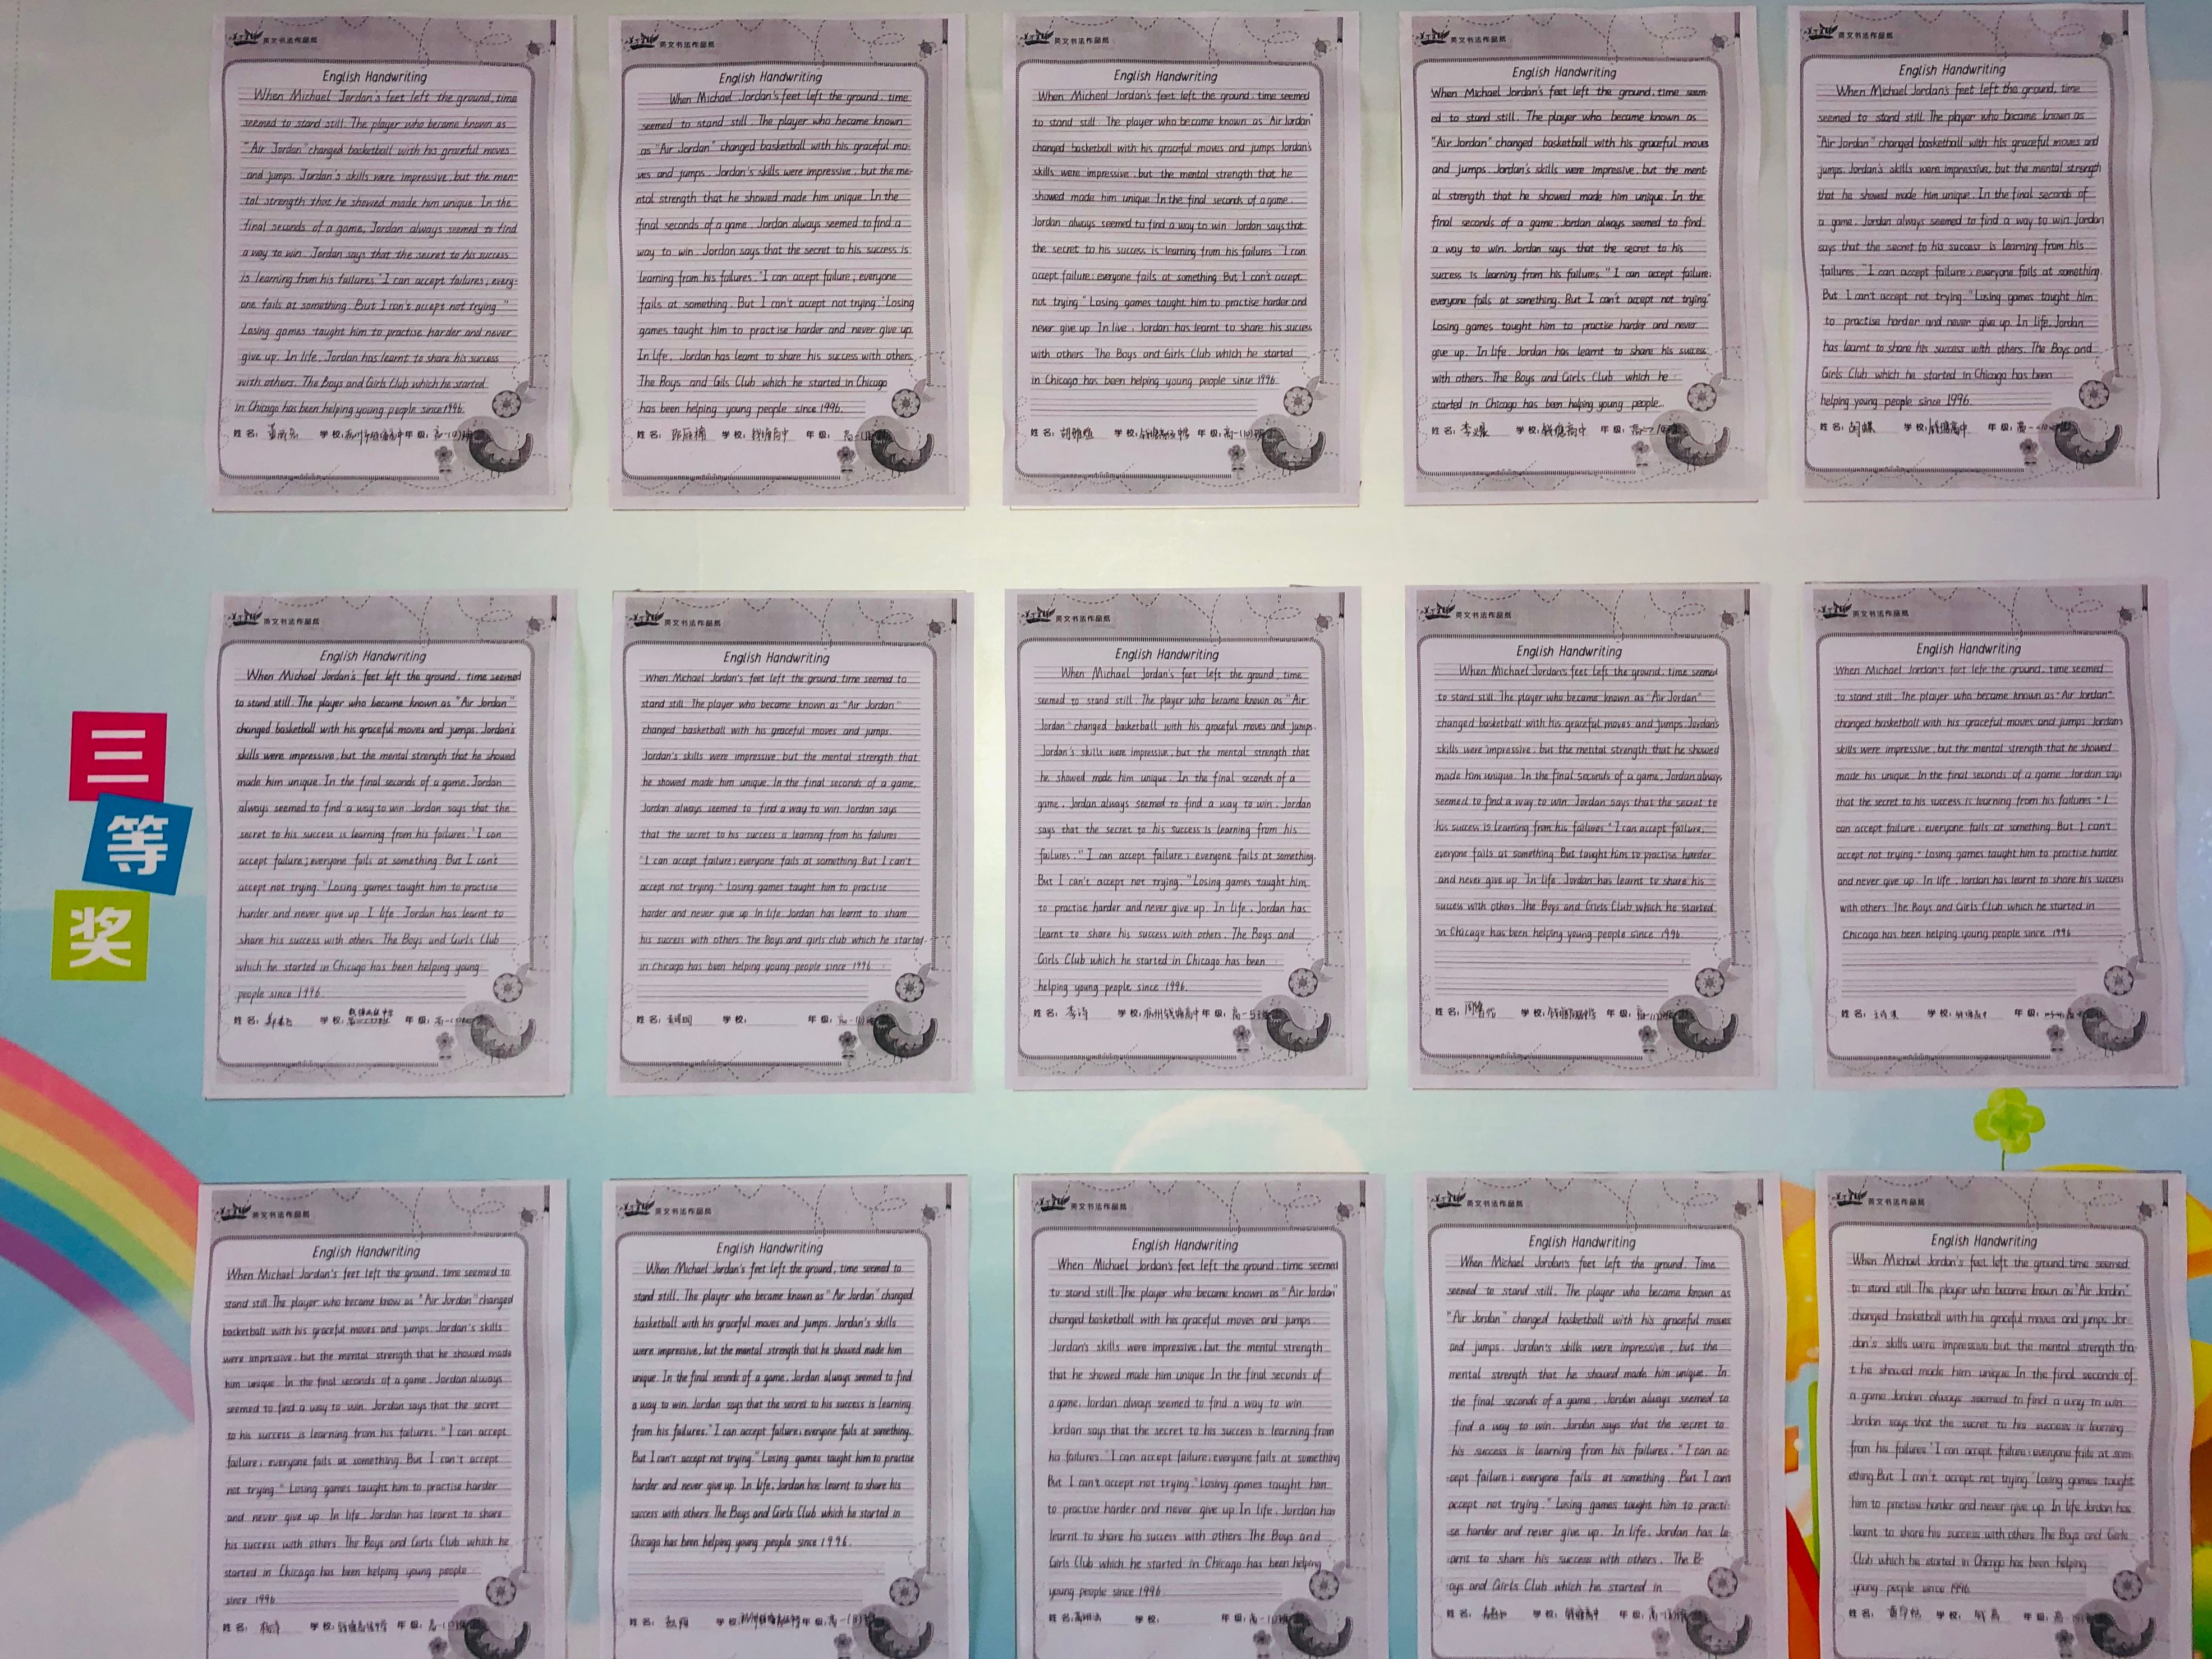 英文书法作品纸
English Handwriting
When Michael Jordan's feet left the ground, time
seemed to stand still. The player who became known as
"Air Jordan" changed basketball with his graceful moves
and jumps. Jordan's skills were impressive, but the men-
tal strength that he showed made him unique. In the
final seconds of a game, Jordan always seemed to find
a way to win. Jordan says that the secret to his success
is learning from his failures. "I can accept failures, every-
one fails at something. But I can't accept not trying."
Losing games taught him to practise harder and never
give up. In life, Jordan has learnt to share his success
with others. The Boys and Girls Club which he started
in Chicago has been helping young people since 1996.
姓名: 学校: 年级:
英文书法作品纸
English Handwriting
When Michael Jordan's feet left the ground, time
seemed to stand still. The player who became known
as "Air Jordan" changed basketball with his graceful mo-
ves and jumps. Jordan's skills were impressive, but the me-
ntal strength that he showed made him unique. In the
final seconds of a game, Jordan always seemed to find a
way to win. Jordan says that the secret to his success is
learning from his failures. "I can accept failure; everyone
fails at something. But I can't accept not trying." Losing
games taught him to practise harder and never give up.
In life, Jordan has learnt to share his success with others.
The Boys and Gils Club which he started in Chicago
has been helping young people since 1996.
姓名: 学校: 钱塘高中 年级:
英文书法作品纸
English Handwriting
When Micheal Jordan's feet left the ground, time seemed
to stand still. The player who became known as "Air Jordan"
changed basketball with his graceful moves and jumps. Jordan's
skills were impressive, but the mental strength that he
showed made him unique. In the final seconds of a game,
Jordan always seemed to find a way to win. Jordan says that
the secret to his success is learning from his failures. "I can
accept failure; everyone fails at something. But I can't accept
not trying." Losing games taught him to practise harder and
never give up. In live, Jordan has learnt to share his success
with others. The Boys and Girls Club which he started
in Chicago has been helping young people since 1996.
姓名: 学校: 年级:
英文书法作品纸
English Handwriting
When Michael Jordan's feet left the ground, time seem-
ed to stand still. The player who became known as
"Air Jordan" changed basketball with his graceful moves
and jumps. Jordan's skills were impressive, but the ment-
al strength that he showed made him unique. In the
final seconds of a game Jordan always seemed to find
a way to win. Jordan says that the secret to his
success is learning from his failures. "I can accept failure;
everyone fails at something. But I can't accept not trying."
Losing games taught him to practise harder and never
give up. In life, Jordan has learnt to share his success
with others. The Boys and Girls Club which he
started in Chicago has been helping young people...
姓名: 学校: 钱塘高中 年级:
英文书法作品纸
English Handwriting
When Michael Jordan's feet left the ground, time
seemed to stand still. The player who became known as
"Air Jordan" changed basketball with his graceful moves and
jumps. Jordan's skills were impressive, but the mental strength
that he showed made him unique. In the final seconds of
a game, Jordan always seemed to find a way to win. Jordan
says that the secret to his success is learning from his
failures. "I can accept failure; everyone fails at something.
But I can't accept not trying." Losing games taught him
to practise harder and never give up. In life, Jordan
has learnt to share his success with others. The Boys and
Girls Club which he started in Chicago has been
helping young people since 1996.
姓名: 胡蝶 学校: 钱塘高中 年级:
三
等
奖
英文书法作品纸
English Handwriting
When Michael Jordan's feet left the ground, time seemed
to stand still. The player who became known as "Air Jordan"
changed basketball with his graceful moves and jumps. Jordan's
skills were impressive, but the mental strength that he showed
made him unique. In the final seconds of a game, Jordan
always seemed to find a way to win. Jordan says that the
secret to his success is learning from his failures. "I can
accept failure; everyone fails at something. But I can't
accept not trying." Losing games taught him to practise
harder and never give up. I life, Jordan has learnt to
share his success with others. The Boys and Girls Club
which he started in Chicago has been helping young
people since 1996.
姓名: 学校: 年级:
英文书法作品纸
English Handwriting
When Michael Jordan's feet left the ground, time seemed to
stand still. The player who became known as "Air Jordan"
changed basketball with his graceful moves and jumps.
Jordan's skills were impressive, but the mental strength that
he showed made him unique. In the final seconds of a game,
Jordan always seemed to find a way to win. Jordan says
that the secret to his success is learning from his failures.
"I can accept failure; everyone fails at something. But I can't
accept not trying." Losing games taught him to practise
harder and never give up. In life, Jordan has learnt to sham
his success with others. The Boys and girls club which he started
in Chicago has been helping young people since 1996.
姓名: 学校: 年级:
英文书法作品纸
English Handwriting
When Michael Jordan's feet left the ground, time
seemed to stand still. The player who became known as "Air
Jordan" changed basketball with his graceful moves and jumps.
Jordan's skills were impressive, but the mental strength that
he showed made him unique. In the final seconds of a
game, Jordan always seemed to find a way to win. Jordan
says that the secret to his success is learning from his
failures. "I can accept failure; everyone fails at something.
But I can't accept not trying." Losing games taught him
to practise harder and never give up. In life, Jordan has
learnt to share his success with others. The Boys and
Girls Club which he started in Chicago has been
helping young people since 1996.
姓名: 李诗 学校: 杭州钱塘高中 年级:
英文书法作品纸
English Handwriting
When Michael Jordan's feet left the ground, time seemed
to stand still. The player who became known as "Air Jordan"
changed basketball with his graceful moves and jumps. Jordan's
skills were impressive, but the mental strength that he showed
made him unique. In the final seconds of a game, Jordan always
seemed to find a way to win. Jordan says that the secret to
his success is learning from his failures. "I can accept failure,
everyone fails at something. But taught him to practise harder
and never give up. In life, Jordan has learnt to share his
success with others. The Boys and Girls Club which he started
in Chicago has been helping young people since 1996.
姓名: 学校: 年级:
英文书法作品纸
English Handwriting
When Michael Jordan's feet left the ground, time seemed
to stand still. The player who became known as "Air Jordan"
changed basketball with his graceful moves and jumps. Jordan
skills were impressive, but the mental strength that he showed
made his unique. In the final seconds of a game, Jordan says
that the secret to his success is learning from his failures. "I
can accept failure; everyone fails at something. But I can't
accept not trying." Losing games taught him to practise harder
and never give up. In life, Jordan has learnt to share his success
with others. The Boys and Girls Club which he started in
Chicago has been helping young people since 1996
姓名: 学校: 年级:
英文书法作品纸
English Handwriting
When Michael Jordan's feet left the ground, time seemed to
stand still. The player who became know as "Air Jordan" changed
basketball with his graceful moves and jumps. Jordan's skills
were impressive, but the mental strength that he showed made
him unique. In the final seconds of a game, Jordan always
seemed to find a way to win. Jordan says that the secret
to his success is learning from his failures. "I can accept
failure; everyone fails at something. But I can't accept
not trying." Losing games taught him to practise harder
and never give up. In life, Jordan has learnt to share
his success with others. The Boys and Girls Club which he
started in Chicago has been helping young people
since 1996.
姓名: 学校: 年级:
英文书法作品纸
English Handwriting
When Michael Jordan's feet left the ground, time seemed to
stand still. The player who became known as "Air Jordan" changed
basketball with his graceful moves and jumps. Jordan's skills
were impressive, but the mental strength that he showed made him
unique. In the final seconds of a game, Jordan always seemed to find
a way to win. Jordan says that the secret to his success is learning
from his failures. "I can accept failure; everyone fails at something.
But I can't accept not trying." Losing games taught him to practise
harder and never give up. In life, Jordan has learnt to share his
success with others. The Boys and Girls Club which he started in
Chicago has been helping young people since 1996.
姓名: 学校: 年级:
英文书法作品纸
English Handwriting
When Michael Jordan's feet left the ground, time seemed
to stand still. The player who became known as "Air Jordan"
changed basketball with his graceful moves and jumps.
Jordan's skills were impressive, but the mental strength
that he showed made him unique. In the final seconds of
a game, Jordan always seemed to find a way to win.
Jordan says that the secret to his success is learning from
his failures. "I can accept failure; everyone fails at something
But I can't accept not trying." Losing games taught him
to practise harder and never give up. In life, Jordan has
learnt to share his success with others. The Boys and
Girls Club which he started in Chicago has been helping
young people since 1996
姓名: 学校: 年级:
英文书法作品纸
English Handwriting
When Michael Jordan's feet left the ground. Time
seemed to stand still. The player who became known as
"Air Jordan" changed basketball with his graceful moves
and jumps. Jordan's skills were impressive, but the
mental strength that he showed made him unique. In
the final seconds of a game, Jordan always seemed to
find a way to win. Jordan says that the secret to
his success is learning from his failures. "I can ac-
cept failure; everyone fails at something. But I can't
accept not trying." Losing games taught him to practi-
se harder and never give up. In life, Jordan has le-
arnt to share his success with others. The B-
oys and Girls Club which he started in
姓名: 学校: 钱塘高中 年级:
英文书法作品纸
English Handwriting
When Michael Jordan's feet left the ground, time seemed
to stand still. The player who became known as "Air Jordan"
changed basketball with his graceful moves and jumps. Jor-
don's skills were impressive but the mental strength tha-
t he showed made him unique. In the final seconds of
a game Jordan always seemed to find a way to win.
Jordan says that the secret to his success is learning
from his failures "I can accept failure; everyone fails at som-
ething. But I can't accept not trying." Losing games taught
him to practise harder and never give up. In life Jordan has
learnt to share his success with others. The Boys and Girls
Club which he started in Chicago has been helping
young people since 1996
姓名: 学校: 年级: